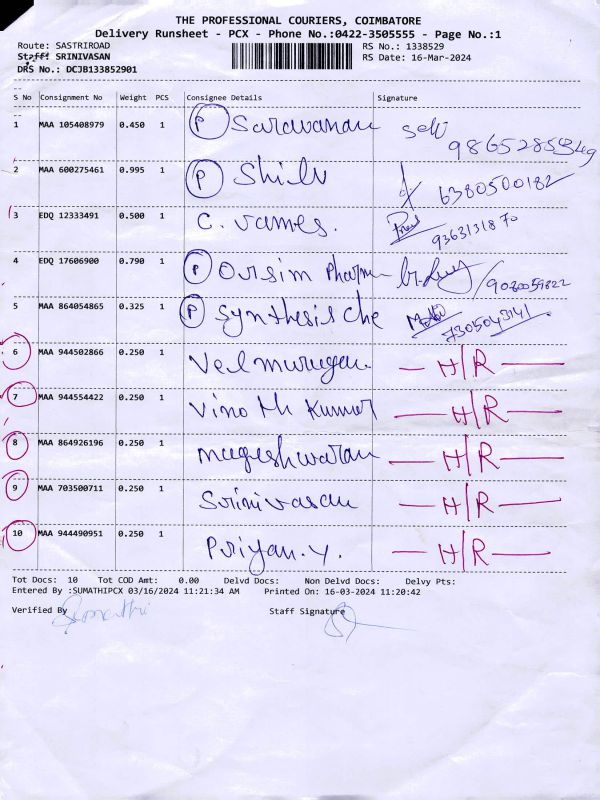 THE PROFESSIONAL COURIERS, COIMBATORE
Delivery Runsheet - PCX - Phone No.:0422-3505555 - Page No.:1
Route: SASTRIROAD RS No.: 1338529
Staff: SRINIVASAN RS Date: 16-Mar-2024
DRS No.: DCJB133852901
S No Consignment No Weight PCS Consignee Details Signature
1 MAA 105408979 0.450 1 P Saravanan
2 MAA 600275461 0.995 1 P 6380500182
3 EDQ 12333491 0.500 1 C. rames. 9363131870
4 EDQ 17606900 0.790 1 P Orsim Pharm 9080059822
5 MAA 864054865 0.325 1 P Synthesis che 7305043141
6 MAA 944502866 0.250 1 Velmurugan. H/R
7 MAA 944554422 0.250 1 Vinoth Kumar H/R
8 MAA 864926196 0.250 1 mageshwaran H/R
9 MAA 703500711 0.250 1 Srinivasan H/R
10 MAA 944490951 0.250 1 Priyan. y. H/R
Tot Docs: 10 Tot COD Amt: 0.00 Delvd Docs: Non Delvd Docs: Delvy Pts:
Entered By :SUMATHIPCX 03/16/2024 11:21:34 AM Printed On: 16-03-2024 11:20:42
Verified By Sumathi Staff Signature